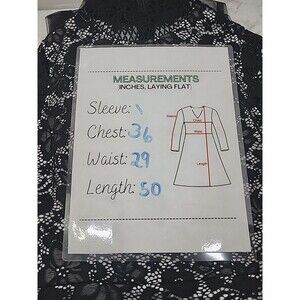 MEASUREMENTS
(INCHES, LAYING FLAT)
Sleeve: \
Chest: 36
Waist: 29
Length: 50
Length